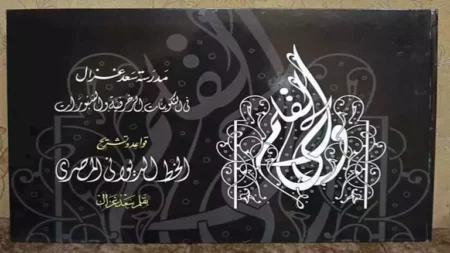 مدرسة سعد غزال
في التكوينات الزخرفية والشعورات
قواعد وتشريح
الخط الديواني المصري
بقلم سعد غزال
وحي القلم